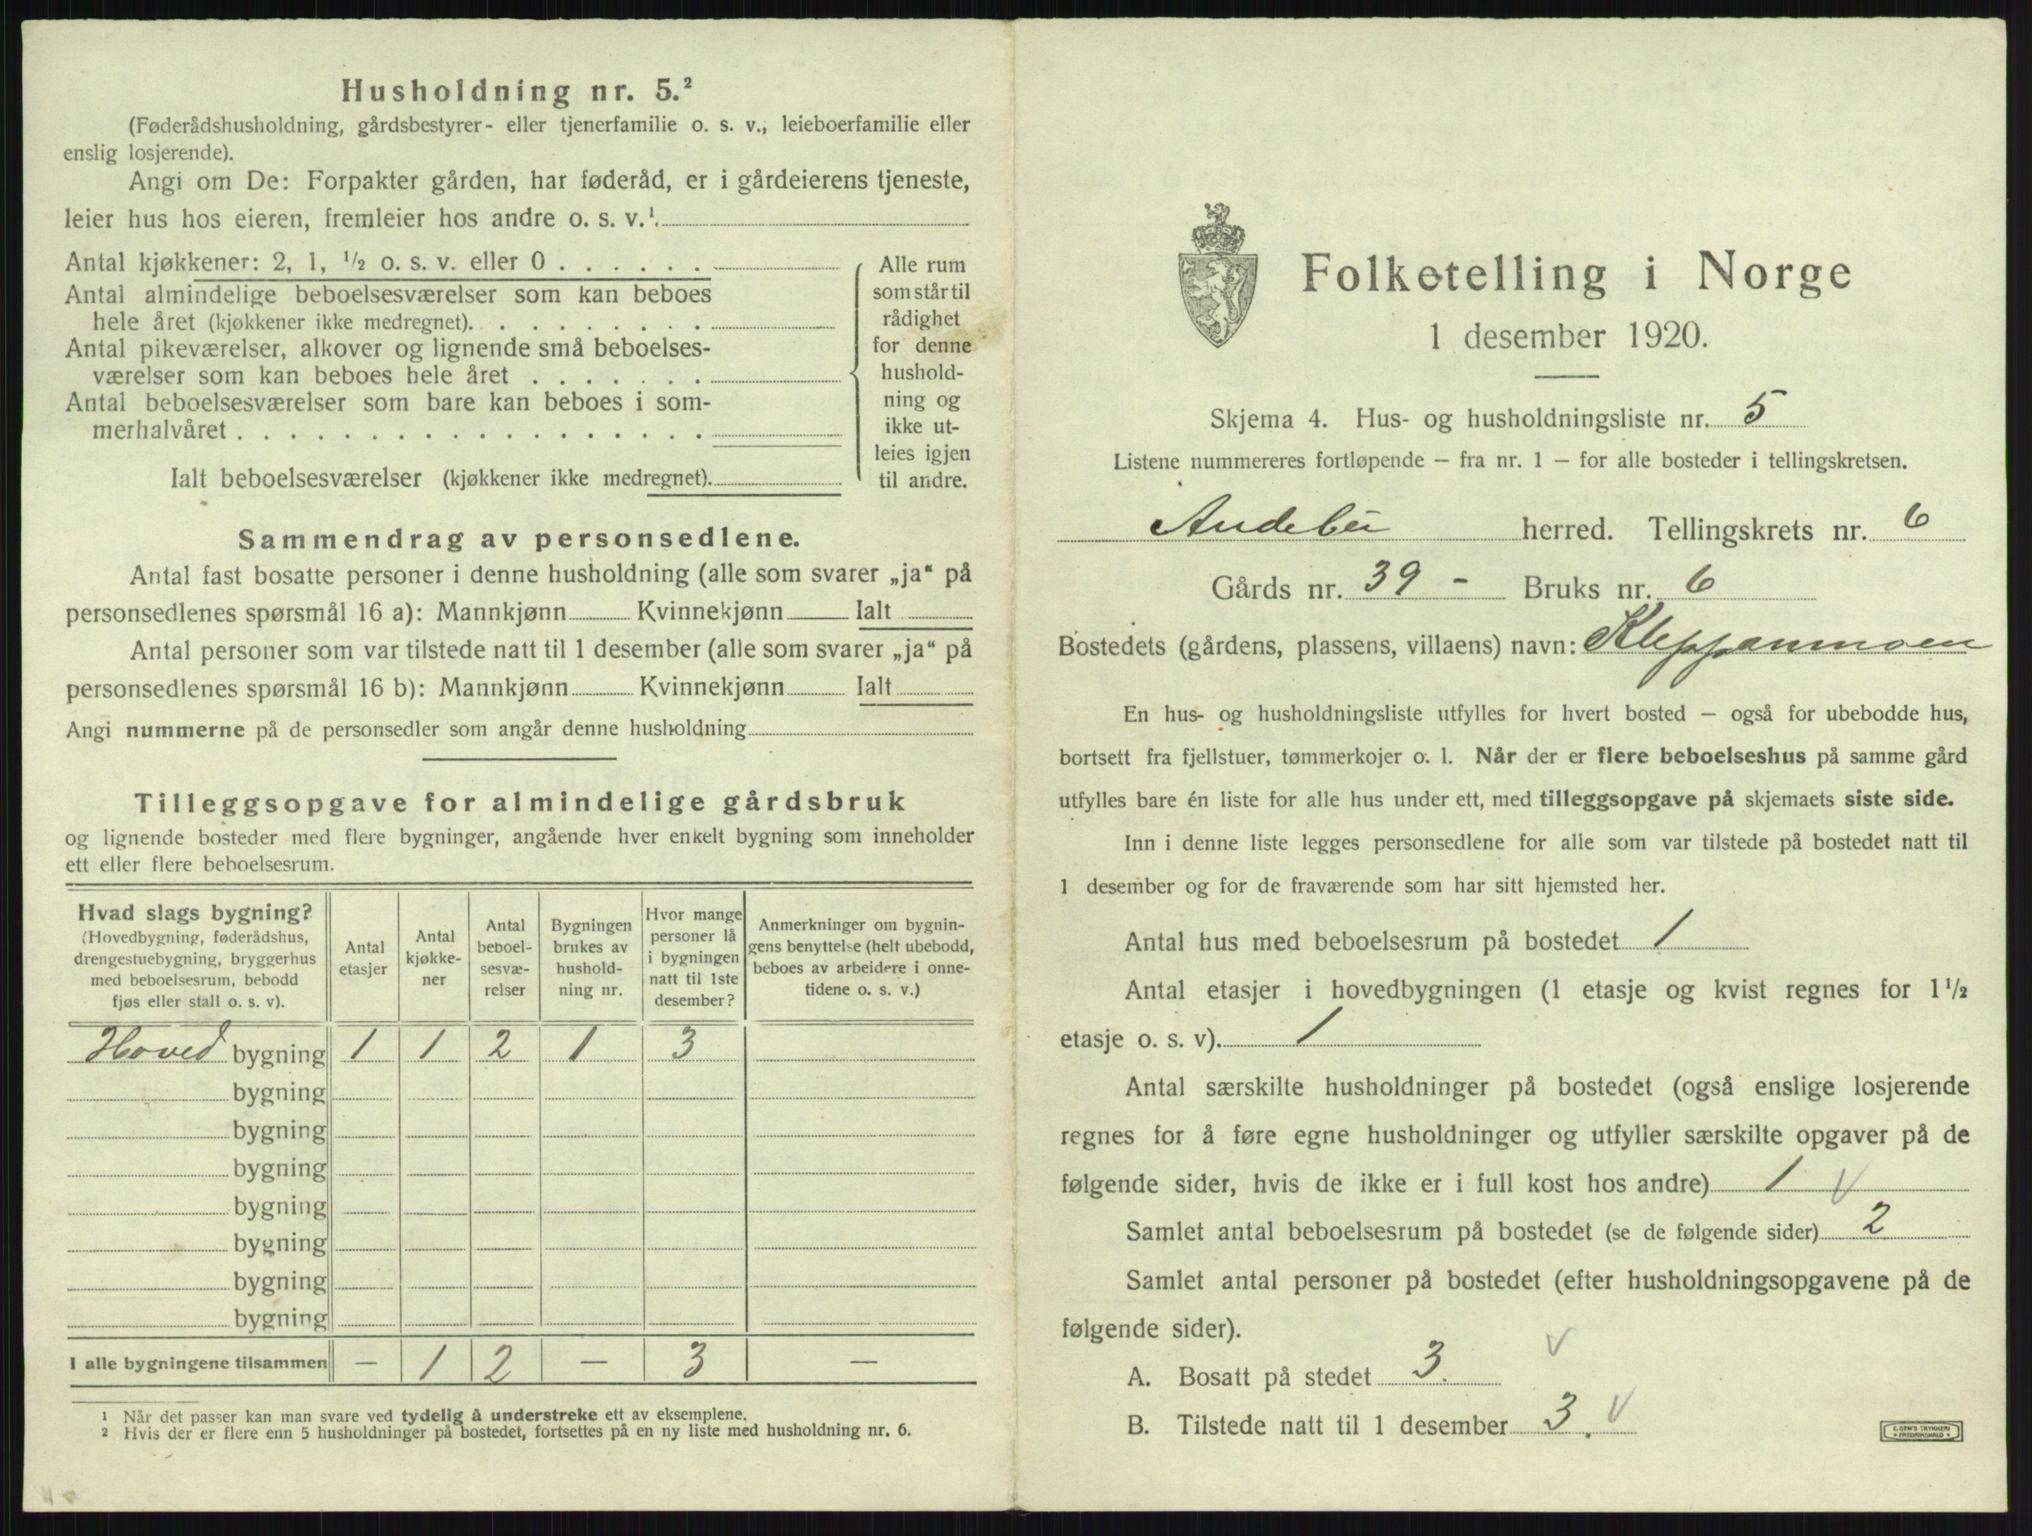 Husholdning nr. 5.²
(Føderådshusholdning, gårdsbestyrer- eller tjenerfamilie o. s. v., leieboerfamilie eller
enslig losjerende).
Angi om De: Forpakter gården, har føderåd, er i gårdeierens tjeneste,
leier hus hos eieren, fremleier hos andre o. s. v.¹.
Antal kjøkkener: 2, 1, ½ o. s. v. eller 0 . . . . . .
Antal almindelige beboelsesværelser som kan beboes
hele året (kjøkkener ikke medregnet). . . . . . . . .
Antal pikeværelser, alkover og lignende små beboelses-
værelser som kan beboes hele året . . . . . . .
Antal beboelsesværelser som bare kan beboes i som-
merhalvåret . . . . . . . . . . . . . . . . . .
Ialt beboelsesværelser (kjøkkener ikke medregnet).
Alle rum
som står til
rådighet
for denne
hushold-
ning og
ikke ut-
leies igjen
til andre.
Sammendrag av personsedlene.
Antal fast bosatte personer i denne husholdning (alle som svarer „ja“ på
personsedlenes spørsmål 16 a): Mannkjønn Kvinnekjønn Ialt
Antal personer som var tilstede natt til 1 desember (alle som svarer „ja“ på
personsedlenes spørsmål 16 b): Mannkjønn Kvinnekjønn Ialt
Angi nummerne på de personsedler som angår denne husholdning
Tilleggsopgave for almindelige gårdsbruk
og lignende bosteder med flere bygninger, angående hver enkelt bygning som inneholder
ett eller flere beboelsesrum.
Hvad slags bygning?
(Hovedbygning, føderådshus,
drengestuebygning, bryggerhus
med beboelsesrum, bebodd
fjøs eller stall o. s. v).
Antal
etasjer
Antal
kjøkke-
ner
Antal
beboel-
sesvæ-
relser
Bygningen
brukes av
hushold-
ning nr.
Hvor mange
personer lå
i bygningen
natt til 1ste
desember?
Anmerkninger om bygnin-
gens benyttelse (helt ubebodd,
beboes av arbeidere i onne-
tidene o. s. v.)
Hoved bygning 1 1 2 1 3
bygning
bygning
bygning
bygning
bygning
bygning
bygning
I alle bygningene tilsammen — 1 2 — 3 —
¹ Når det passer kan man svare ved tydelig å understreke ett av eksemplene.
² Hvis der er flere enn 5 husholdninger på bostedet, fortsettes på en ny liste med husholdning nr. 6.
Folketelling i Norge
1 desember 1920.
Skjema 4. Hus- og husholdningsliste nr. 5
Listene nummereres fortløpende — fra nr. 1 — for alle bosteder i tellingskretsen.
Andebu herred. Tellingskrets nr. 6
Gårds nr. 39 - Bruks nr. 6
Bostedets (gårdens, plassens, villaens) navn: Kleppanmoen
En hus- og husholdningsliste utfylles for hvert bosted — også for ubebodde hus,
bortsett fra fjellstuer, tømmerkojer o. l. Når der er flere beboelseshus på samme gård
utfylles bare én liste for alle hus under ett, med tilleggsopgave på skjemaets siste side.
Inn i denne liste legges personsedlene for alle som var tilstede på bostedet natt til
1 desember og for de fraværende som har sitt hjemsted her.
Antal hus med beboelsesrum på bostedet 1
Antal etasjer i hovedbygningen (1 etasje og kvist regnes for 1½
etasje o. s. v). 1
Antal særskilte husholdninger på bostedet (også enslige losjerende
regnes for å føre egne husholdninger og utfyller særskilte opgaver på de
følgende sider, hvis de ikke er i full kost hos andre) 1 v
Samlet antal beboelsesrum på bostedet (se de følgende sider) 2
Samlet antal personer på bostedet (efter husholdningsopgavene på de
følgende sider).
A. Bosatt på stedet 3. v
B. Tilstede natt til 1 desember 3. v
E. SEM'S TRYKKERI
FREDRIKSHALD